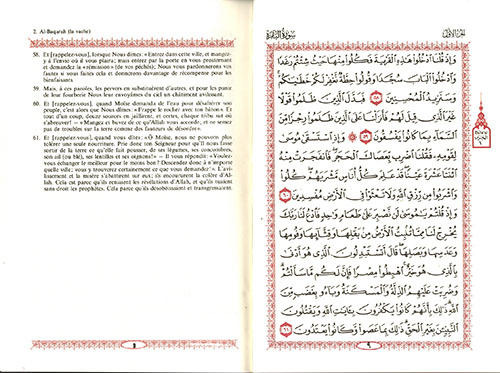 2. Al-Baqarah (la vache)
58. Et [rappelez-vous], lorsque Nous dîmes : «Entrez dans cette ville, et mangez-
y à l'envie où il vous plaira; mais entrez par la porte en vous prosternant
et demandez la «rémission» (de vos péchés); Nous vous pardonnerons vos
fautes si vous faites cela et donnerons davantage de récompense pour les
bienfaisants.
59. Mais, à ces paroles, les pervers en substituèrent d'autres, et pour les punir
de leur fourberie Nous leur envoyâmes du ciel un châtiment avilissant.
60. Et [rappelez-vous], quand Moïse demanda de l'eau pour désaltérer son
peuple, c'est alors que Nous dîmes: «Frappe le rocher avec ton bâton». Et
tout d'un coup, douze sources en jaillirent, et certes, chaque tribu sut où
s'abreuver! — «Mangez et buvez de ce qu'Allah vous accorde, et ne semez
pas de troubles sur la terre comme des fauteurs de désordre».
61. Et [rappelez-vous], quand vous dîtes: «Ô Moïse, nous ne pouvons plus
tolérer une seule nourriture. Prie donc ton Seigneur pour qu'Il nous fasse
sortir de la terre ce qu'elle fait pousser, de ses légumes, ses concombres,
son ail (ou blé), ses lentilles et ses oignons!» — Il vous répondit: «Voulez-
vous échanger le meilleur pour le moins bon? Descendez donc à n'importe
quelle ville; vous y trouverez certainement ce que vous demandez!». L'a-
vilissement et la misère s'abattirent sur eux; ils encoururent la colère d'Al-
lah. Cela est parce qu'ils reniaient les révélations d'Allah, et qu'ils tuaient
sans droit les prophètes. Cela parce qu'ils désobéissaient et transgressaient.
٩
الجزء الأول
سورة البقرة
وَإِذْ قُلْنَا ادْخُلُوا هَٰذِهِ الْقَرْيَةَ فَكُلُوا مِنْهَا حَيْثُ شِئْتُمْ رَغَدًا
وَادْخُلُوا الْبَابَ سُجَّدًا وَقُولُوا حِطَّةٌ نَّغْفِرْ لَكُمْ خَطَايَاكُمْ
وَسَنَزِيدُ الْمُحْسِنِينَ ٥٨ فَبَدَّلَ الَّذِينَ ظَلَمُوا قَوْلًا
غَيْرَ الَّذِي قِيلَ لَهُمْ فَأَنزَلْنَا عَلَى الَّذِينَ ظَلَمُوا رِجْزًا مِّنَ
السَّمَاءِ بِمَا كَانُوا يَفْسُقُونَ ٥٩ وَإِذِ اسْتَسْقَىٰ مُوسَىٰ
لِقَوْمِهِ فَقُلْنَا اضْرِب بِّعَصَاكَ الْحَجَرَ فَانفَجَرَتْ مِنْهُ
اثْنَتَا عَشْرَةَ عَيْنًا قَدْ عَلِمَ كُلُّ أُنَاسٍ مَّشْرَبَهُمْ كُلُوا
وَاشْرَبُوا مِن رِّزْقِ اللَّهِ وَلَا تَعْثَوْا فِي الْأَرْضِ مُفْسِدِينَ ٦٠
وَإِذْ قُلْتُمْ يَا مُوسَىٰ لَن نَّصْبِرَ عَلَىٰ طَعَامٍ وَاحِدٍ فَادْعُ لَنَا رَبَّكَ
يُخْرِجْ لَنَا مِمَّا تُنبِتُ الْأَرْضُ مِن بَقْلِهَا وَقِثَّائِهَا وَفُومِهَا
وَعَدَسِهَا وَبَصَلِهَا قَالَ أَتَسْتَبْدِلُونَ الَّذِي هُوَ أَدْنَىٰ
بِالَّذِي هُوَ خَيْرٌ اهْبِطُوا مِصْرًا فَإِنَّ لَكُم مَّا سَأَلْتُمْ
وَضُرِبَتْ عَلَيْهِمُ الذِّلَّةُ وَالْمَسْكَنَةُ وَبَاءُو بِغَضَبٍ مِّنَ
اللَّهِ ذَٰلِكَ بِأَنَّهُمْ كَانُوا يَكْفُرُونَ بِآيَاتِ اللَّهِ وَيَقْتُلُونَ
النَّبِيِّينَ بِغَيْرِ الْحَقِّ ذَٰلِكَ بِمَا عَصَوا وَّكَانُوا يَعْتَدُونَ ٦١
٩